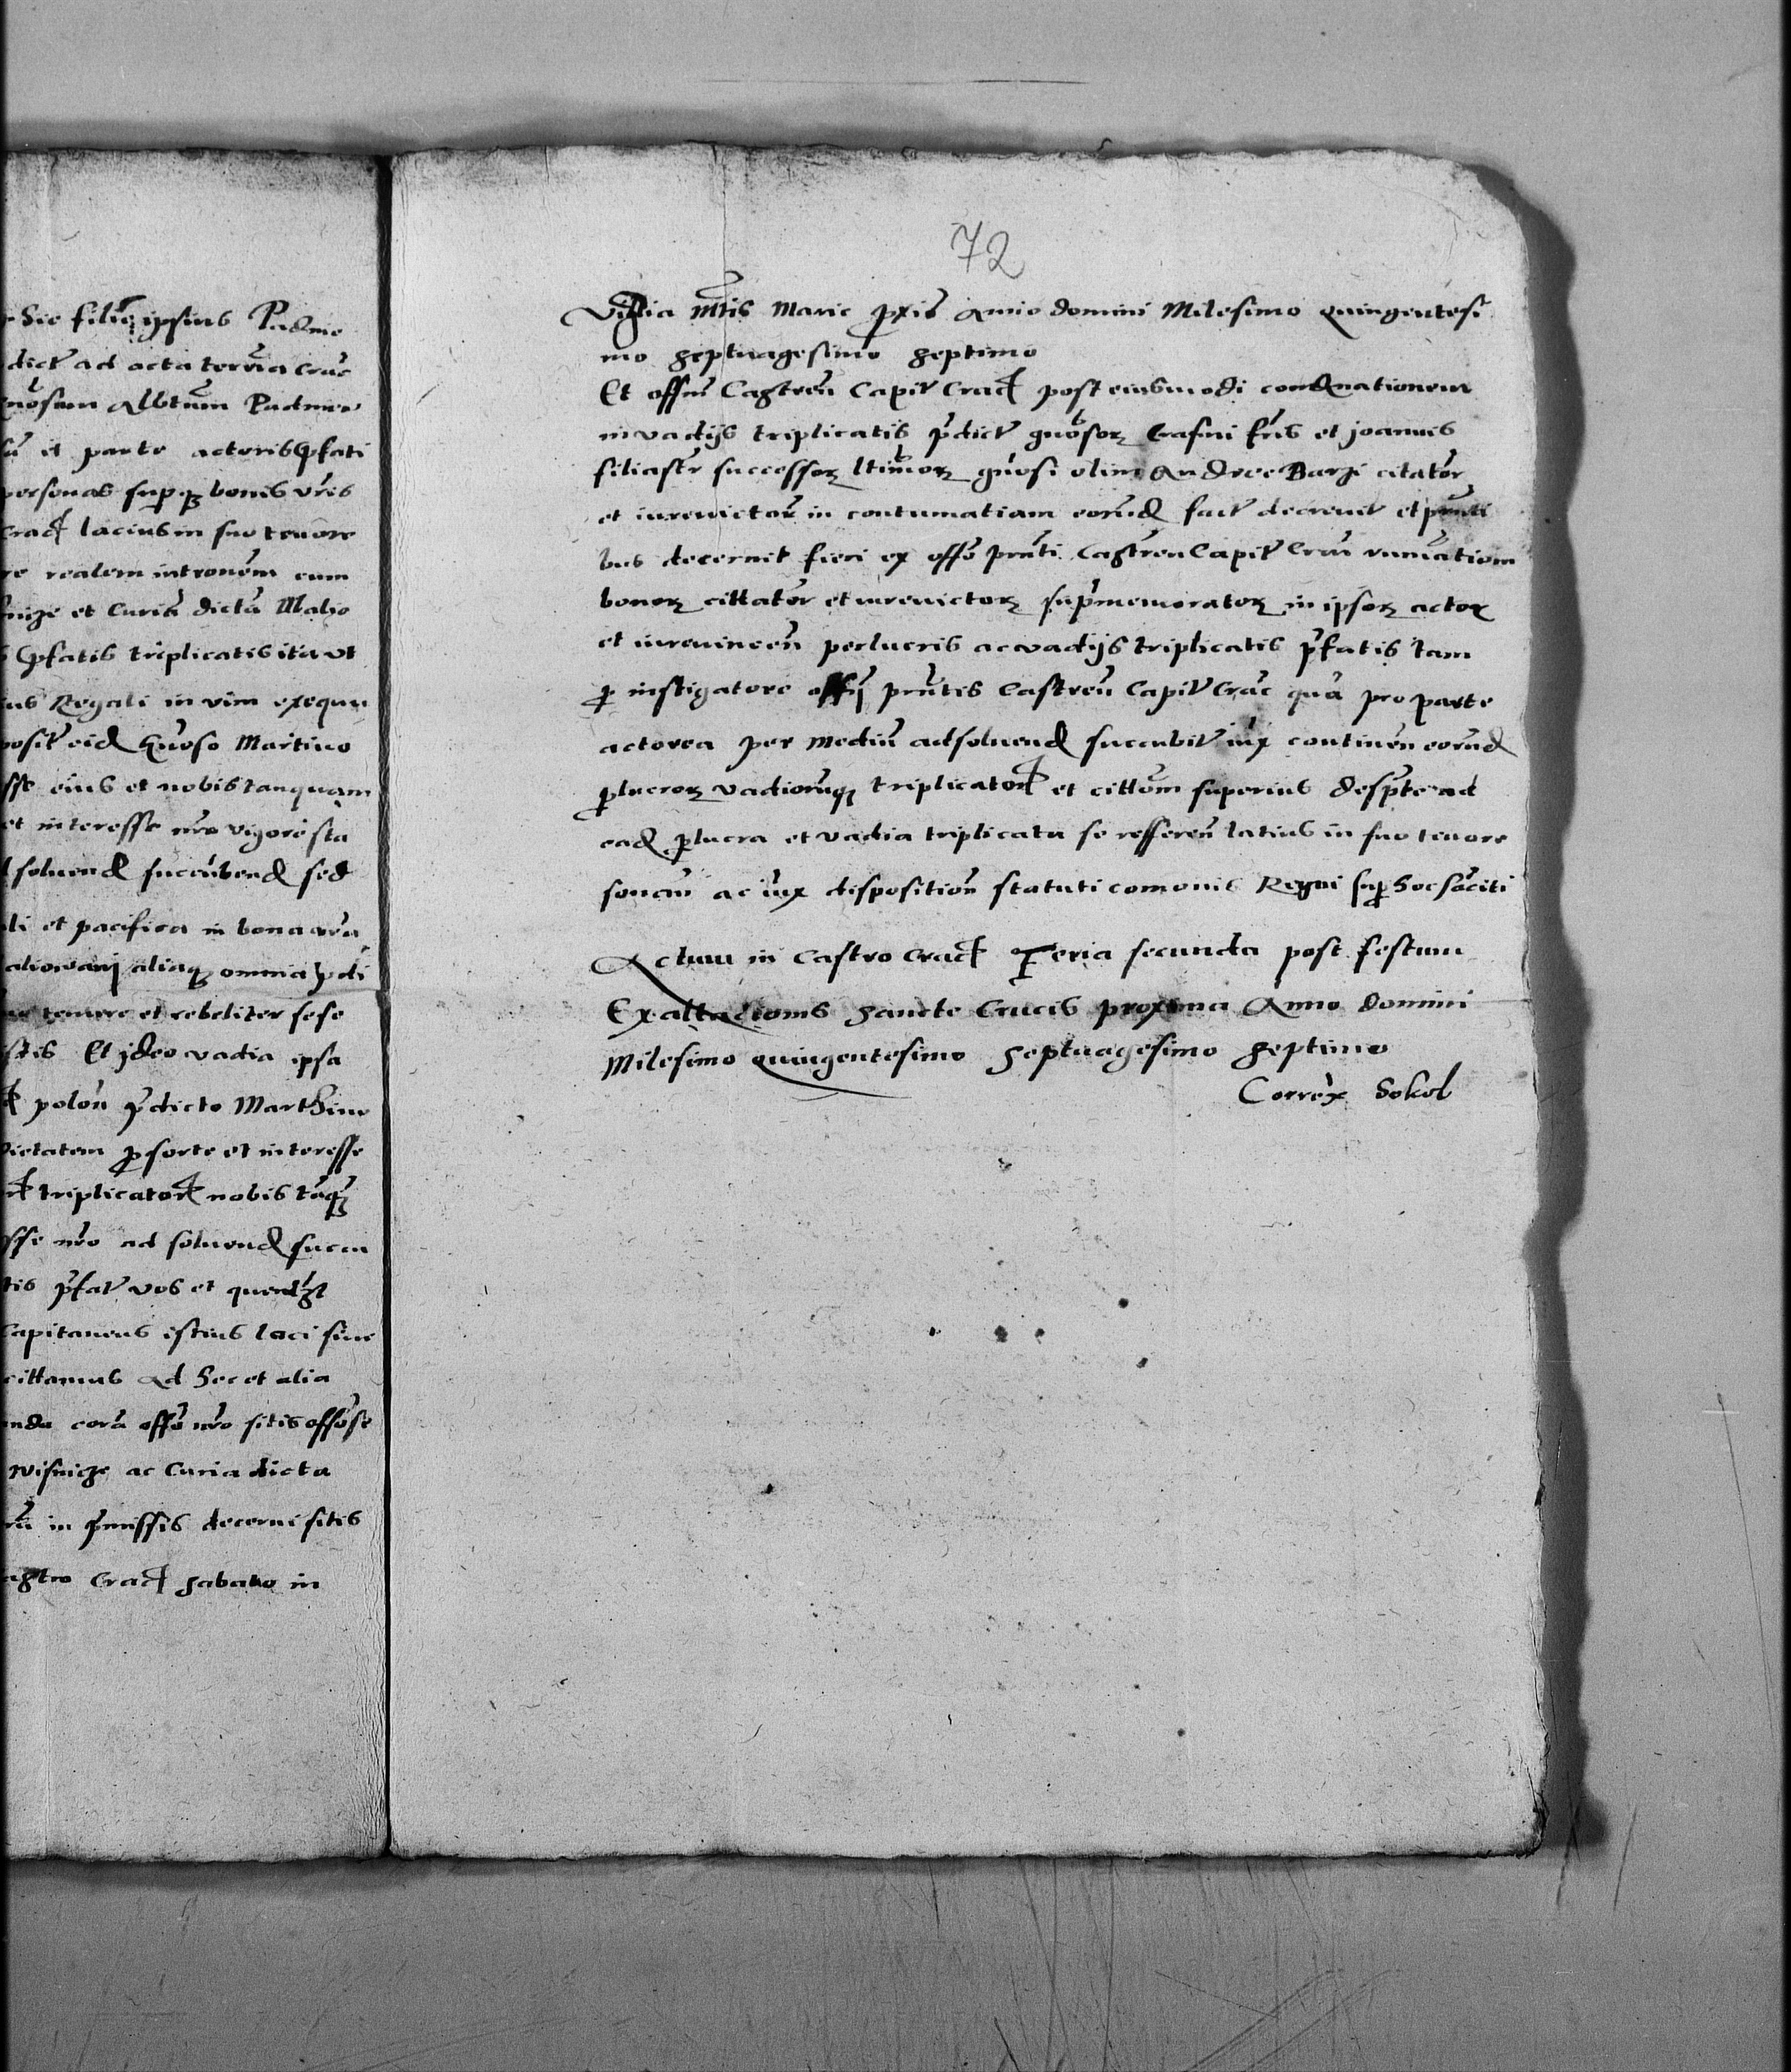 sic filiis ipsius Padnie
dict ad acta terria Crac
gnosum Albtum Padnie
et parte actoris pfati
personas supq bonis vris
Crac lacius in suo tenore
re realem intronem cum
et Curia dicta Malio
pfatis triplicatis ita vt
Regali in vim exequu
posit eid Gnoso Martino
sse eius et nobis tanquam
et interesse nro vigore sta
soluend succubend sed
li et pacifica in bona vra
aliaq omnia
temere et rebeliter sese
stis Et ideo vadia ipsa
polon pdicto Marthino
pietatem p sorte et interesse
triplicator nobis tanq
sse nro ad soluend succu
tis pfat vos et quemlzt
Capitaneus istius loci siue
cittamus ad hec et alia
nda cora offo nro sitis offose
wisnicze ac Curia dicta
in pmissis decerni sitis
astro Crac sabatho in
72
Vigilia Mtis Marie pxis Anno domini Milesimo quingentesi
mo septuagesimo septimo
Et offm Castren Capit Crac post eiusmodi condnationem
in vadijs triplicatis pdict gnosor Erasmi fris et Joannis
filiastr successor ltimor gnosi olim Andree Barzi citator
et iureuictor in contumatiam eorund fact decreuit et pnti
bus decernit fieri ex offo pnti Castren Capit Crac
bonor cittator et iureuictor supmemorator in ipsor actor
et iureuincen perlucris ac vadijs triplicatis pfatis tam
p instigatore offij pntis Castren Capit Crac qua pro parte
actorea per mediu adsoluend succubit iux continen eorund
plucror vadiorumq triplicator et cittom superius despte ad
ead plucra et vadia triplicata se refferem latius in suo tenore
sonan ac iux disposition statuti comonis Regni sup hoc saciti
Actum in Castro Crac Feria secunda post festum
Exaltacionis sancte Crucis proxima Anno domini
Milesimo quingentesimo septuagesimo septimo
Correx Sokol